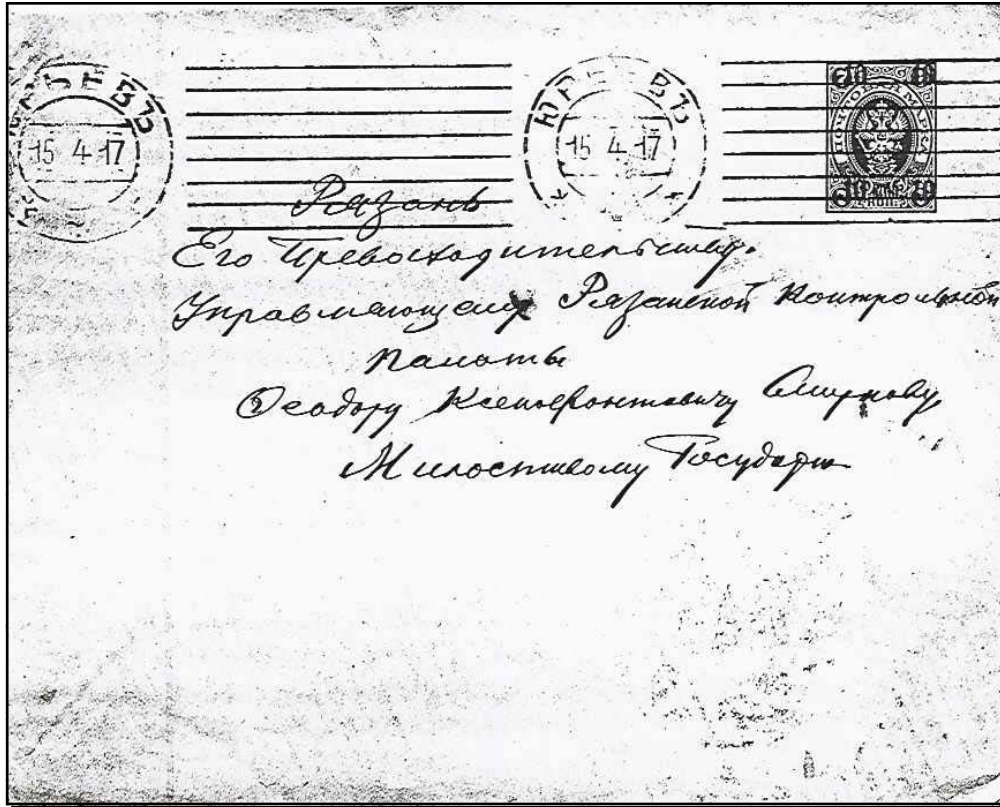 ЮРЬЕВЪ
15 4 17
ЮРЬЕВЪ
15 4 17
ПОЧТОВАЯ МАРКА
10 10
10 КОП. 10
Рязань
Его Превосходительству.
Управляющему Рязанской Контрольной
палаты
Ѳеодору Ксенофонтовичу Смирнову,
Милостивому Государю